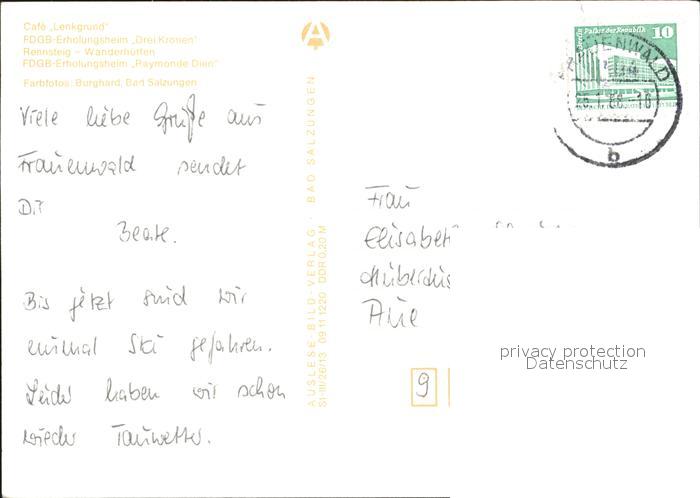 Café „Lenkgrund"
FDGB-Erholungsheim „Drei Kronen"
Rennsteig – Wanderhütten
FDGB-Erholungsheim „Raymonde Dien"
Farbfotos: Burghard, Bad Salzungen
Viele liebe Grüße aus
Frauenwald sendet
Dir
Beate.
Bis jetzt sind wir
einmal Ski gefahren.
Leider haben wir schon
wieder Tauwetter.
AUSLESE-BILD-VERLAG · BAD SALZUNGEN
SI-III/26/13 09 11 1220 DDR 0,20 M
Palast der Republik 10
b
Frau
Elisabeth
Aue
9
privacy protection
Datenschutz